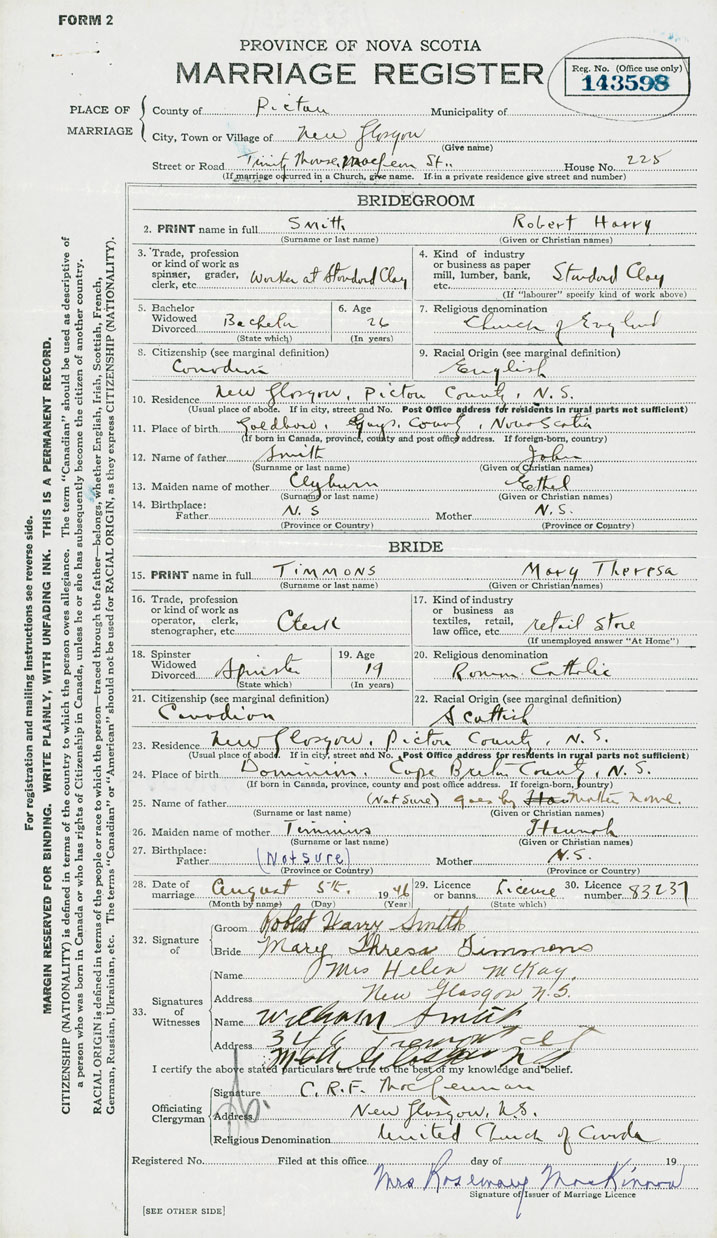 FORM 2
PROVINCE OF NOVA SCOTIA
MARRIAGE REGISTER
Reg. No. (Office use only)
143598
PLACE OF MARRIAGE
County of Pictou Municipality of
City, Town or Village of New Glasgow
(Give name)
Street or Road Trinity House, MacLean St.. House No. 225
(If marriage occurred in a Church, give name. If in a private residence give street and number)
BRIDEGROOM
2. PRINT name in full Smith Robert Harry
(Surname or last name) (Given or Christian names)
3. Trade, profession or kind of work as spinner, grader, clerk, etc. Worker at Standard Clay
4. Kind of industry or business as paper mill, lumber, bank, etc. Standard Clay
(If "labourer" specify kind of work above)
5. Bachelor Widowed Divorced Bachelor
(State which)
6. Age 26
(In years)
7. Religious denomination
Church of England
8. Citizenship (see marginal definition)
Canadian
9. Racial Origin (see marginal definition)
English
10. Residence New Glasgow, Pictou County, N.S.
(Usual place of abode. If in city, street and No. Post Office address for residents in rural parts not sufficient)
11. Place of birth Goldboro, Guys. County, Nova Scotia
(If born in Canada, province, county and post office address. If foreign-born, country)
12. Name of father Smith John
(Surname or last name) (Given or Christian names)
13. Maiden name of mother Clyburn Ethel
(Surname or last name) (Given or Christian names)
14. Birthplace: Father N.S Mother N.S.
(Province or Country) (Province or Country)
BRIDE
15. PRINT name in full TIMMONS Mary Theresa
(Surname or last name) (Given or Christian names)
16. Trade, profession or kind of work as operator, clerk, stenographer, etc. Clerk
17. Kind of industry or business as textiles, retail, law office, etc. retail Store
(If unemployed answer "At Home")
18. Spinster Widowed Divorced Spinster
(State which)
19. Age 19
(In years)
20. Religious denomination
Roman Catholic
21. Citizenship (see marginal definition)
Canadian
22. Racial Origin (see marginal definition)
Scottish
23. Residence New Glasgow, Pictou County, N.S.
(Usual place of abode. If in city, street and No. Post Office address for residents in rural parts not sufficient)
24. Place of birth Dominion, Cape Breton County, N.S.
(If born in Canada, province, county and post office address. If foreign-born, country)
25. Name of father (Not Sure) goes by Mother name.
(Surname or last name) (Given or Christian names)
26. Maiden name of mother Timmins Hannah
(Surname or last name) (Given or Christian names)
27. Birthplace: Father (Not sure) Mother N.S.
(Province or Country) (Province or Country)
28. Date of marriage August 5th. 1946
(Month by name) (Day) (Year)
29. Licence or banns License
(State which)
30. Licence number 83237
32. Signature of
Groom Robert Harry Smith
Bride Mary Thresa Timmons
33. Signatures of Witnesses
Name Mrs Helen McKay.
Address New Glasgow N.S.
Name William Smith
Address 346 Tremont
New Glasgow N S
I certify the above stated particulars are true to the best of my knowledge and belief.
Officiating Clergyman
Signature C. R. F. MacLennan
Address New Glasgow, N.S.
Religious Denomination United Church of Canada
Registered No. Filed at this office day of 19
Mrs Rosemary MacKinnon
Signature of Issuer of Marriage Licence
[SEE OTHER SIDE]
For registration and mailing instructions see reverse side.
MARGIN RESERVED FOR BINDING. WRITE PLAINLY, WITH UNFADING INK. THIS IS A PERMANENT RECORD.
CITIZENSHIP (NATIONALITY) is defined in terms of the country to which the person owes allegiance. The term "Canadian" should be used as descriptive of
a person who was born in Canada or who has rights of Citizenship in Canada, unless he or she has subsequently become the citizen of another country.
RACIAL ORIGIN is defined in terms of the people or race to which the person—traced through the father—belongs, whether English, Irish, Scottish, French,
German, Russian, Ukrainian, etc. The terms "Canadian" or "American" should not be used for RACIAL ORIGIN, as they express CITIZENSHIP (NATIONALITY).